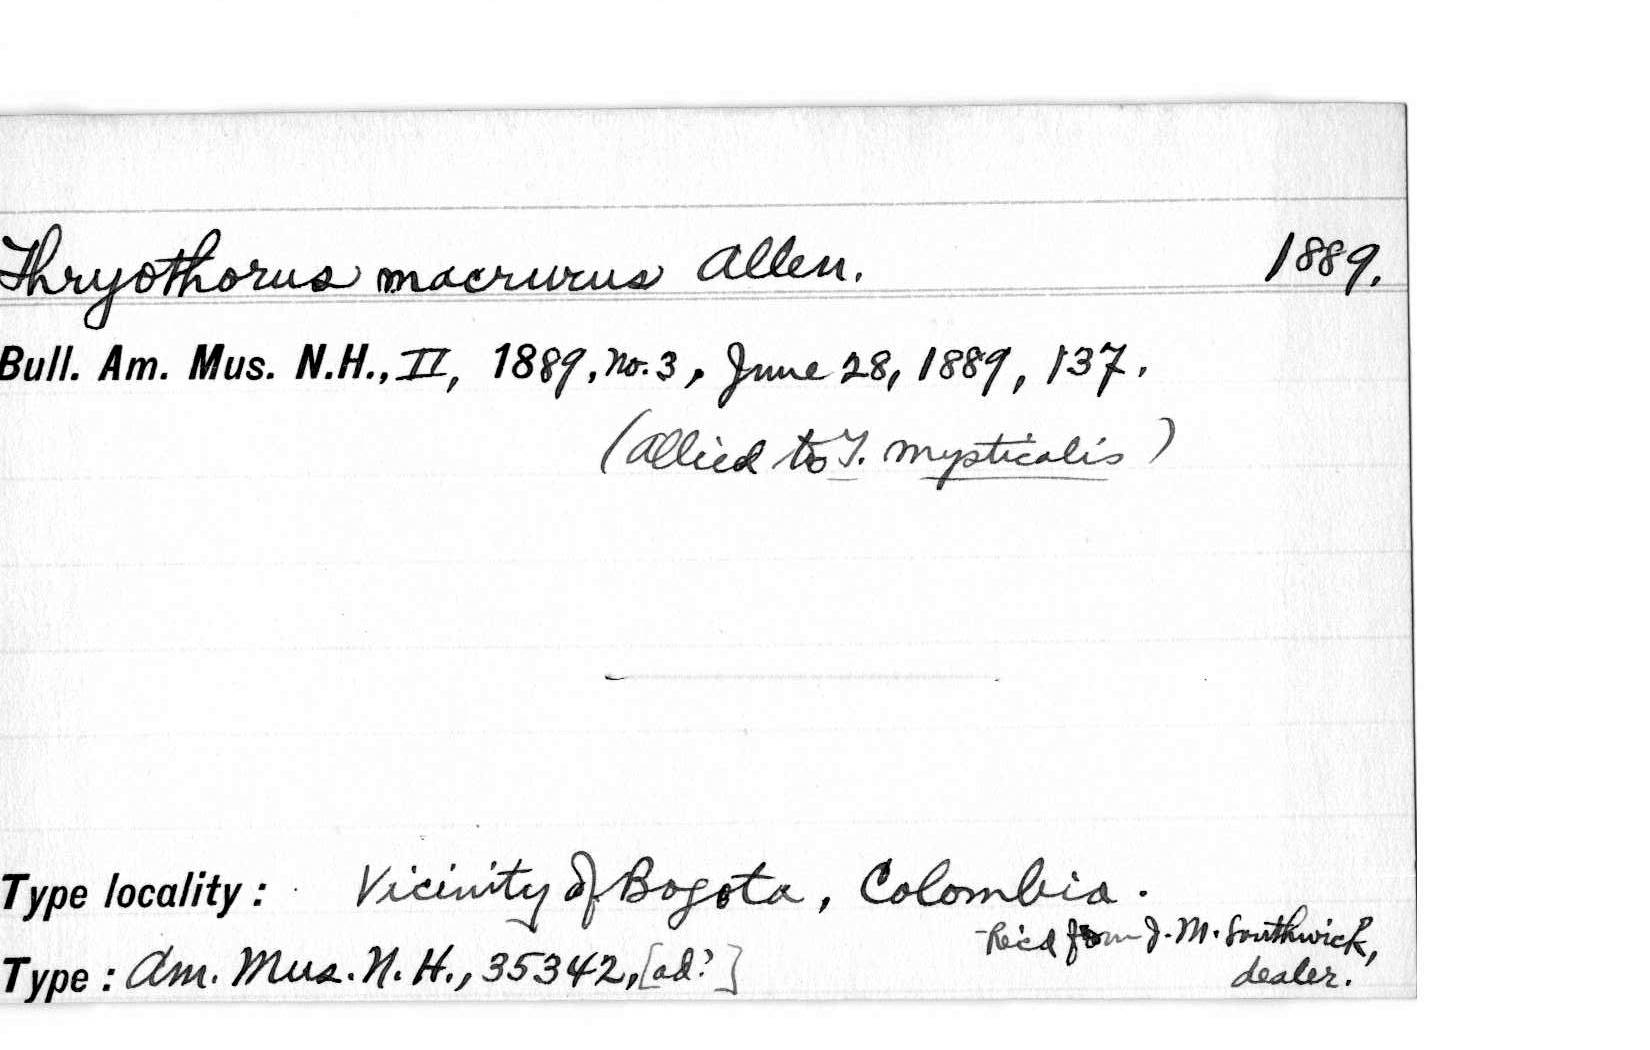 Thryothorus macrurus Allen. 1889.
Bull. Am. Mus. N.H., II, 1889, no. 3, June 28, 1889, 137.
(Allied to T. mysticalis)
Type locality: Vicinity of Bogota, Colombia.
Rec'd from J. M. Southwick,
dealer.
Type: Am. Mus. N. H., 35342, [ad?]